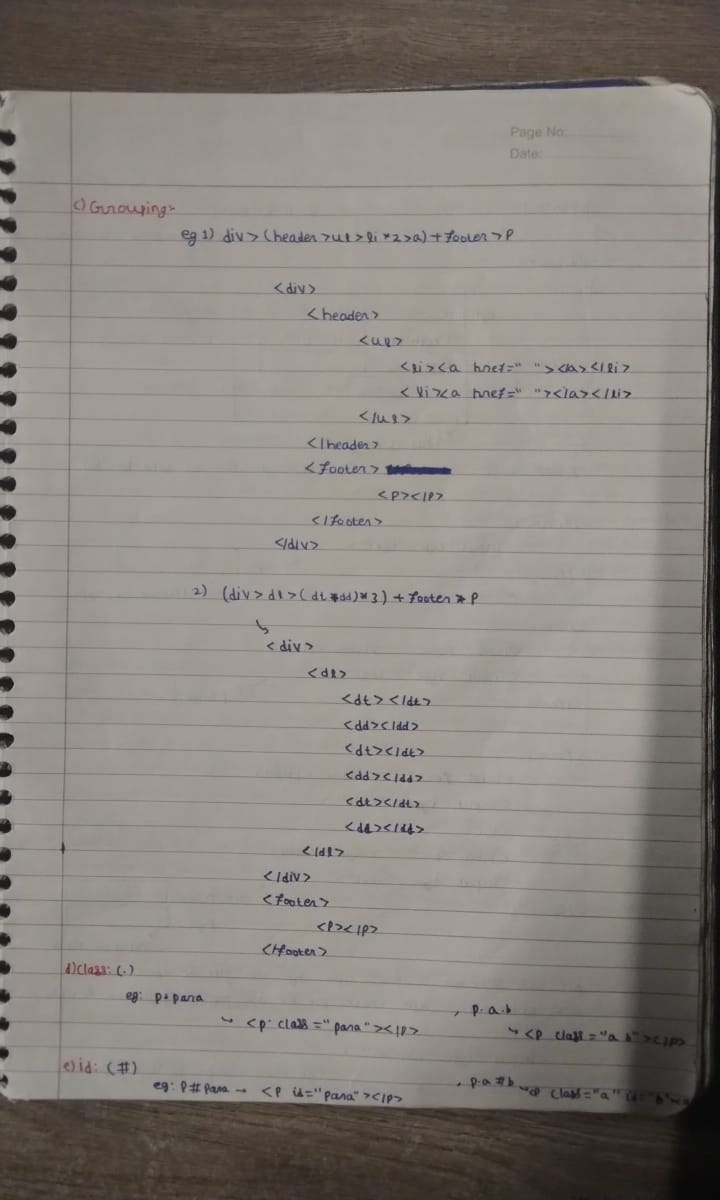 Page No:
Date:
c) Grouping:-
eg 1) div > (header > ul > li *2 > a) + footer > p
<div>
<header>
<ul>
<li><a href=" "></a></li>
<li><a href=" "></a></li>
</ul>
</header>
<footer>
<p></p>
</footer>
</div>
2) (div > dl > (dt + dd)*3) + footer > p
↳
<div>
<dl>
<dt></dt>
<dd></dd>
<dt></dt>
<dd></dd>
<dt></dt>
<dd></dd>
</dl>
</div>
<footer>
<p></p>
</footer>
d) Class: (.)
eg: p.para , p.a.b
↳ <p class="para"></p> ↳ <p class="a b"></p>
e) id: (#)
eg: p#para → <p id="para"></p> , p.a#b → <p class="a" id="b">